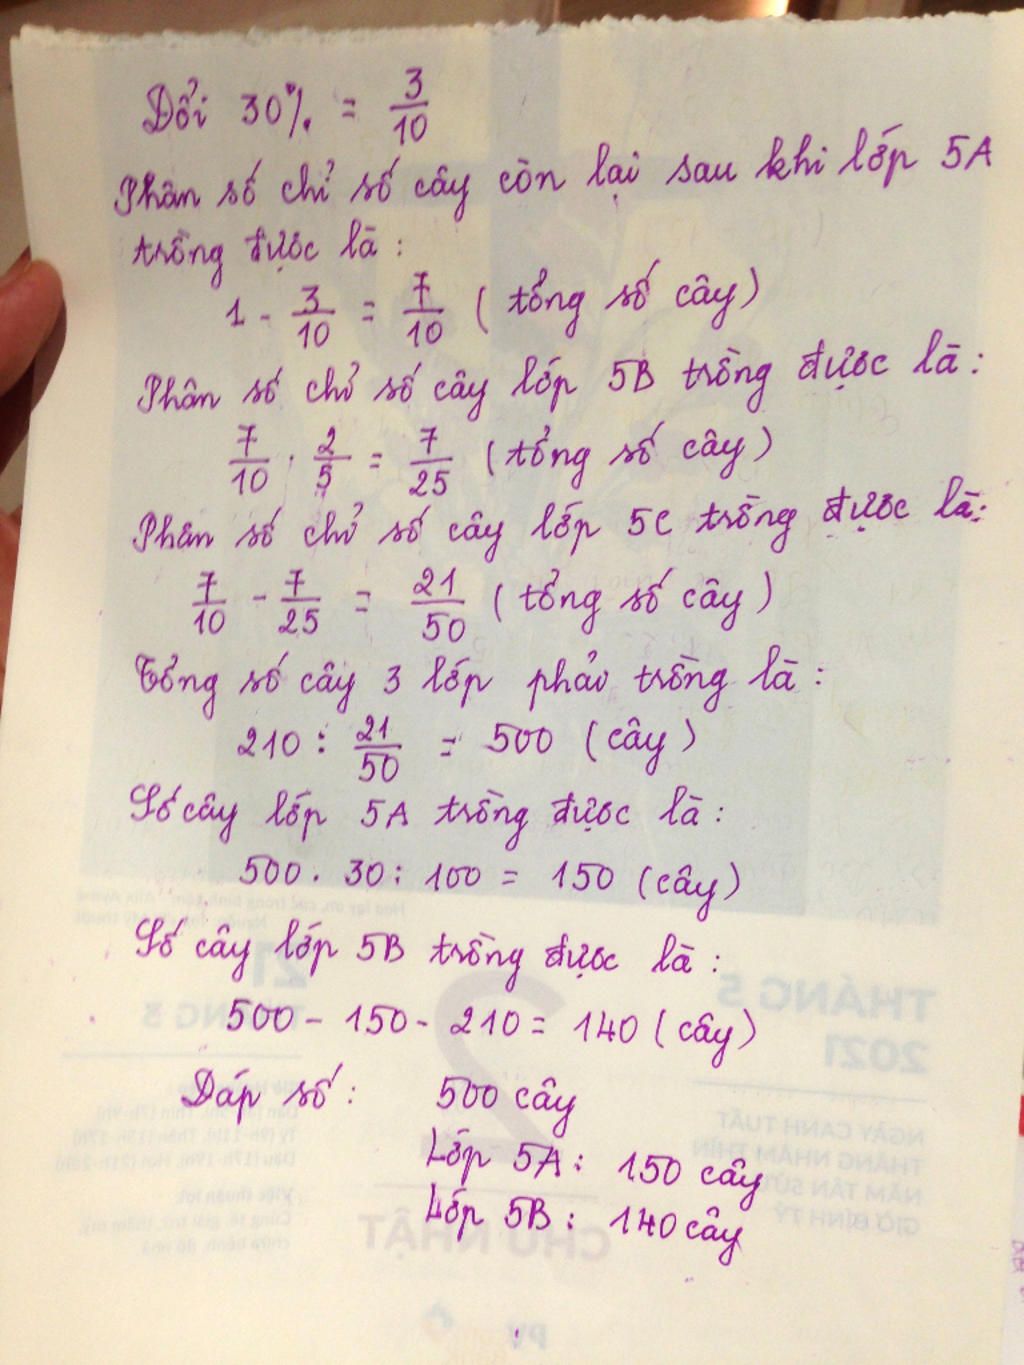 Đổi 30% = 3/10
Phân số chỉ số cây còn lại sau khi lớp 5A
trồng được là:
1 - 3/10 = 7/10 (tổng số cây)
Phân số chỉ số cây lớp 5B trồng được là:
7/10 . 2/5 = 7/25 (tổng số cây)
Phân số chỉ số cây lớp 5C trồng được là:
7/10 - 7/25 = 21/50 (tổng số cây)
Tổng số cây 3 lớp phải trồng là:
210 : 21/50 = 500 (cây)
Số cây lớp 5A trồng được là:
500 . 30 : 100 = 150 (cây)
Số cây lớp 5B trồng được là:
500 - 150 - 210 = 140 (cây)
Đáp số: 500 cây
Lớp 5A: 150 cây
Lớp 5B: 140 cây
THÁNG 5
2021
21
THÁNG 3
2
NGÀY CANH TUẤT
THÁNG NHÂM THÌN
NĂM TÂN SỬU
GIỜ BÍNH TÝ
CHỦ NHẬT
PV